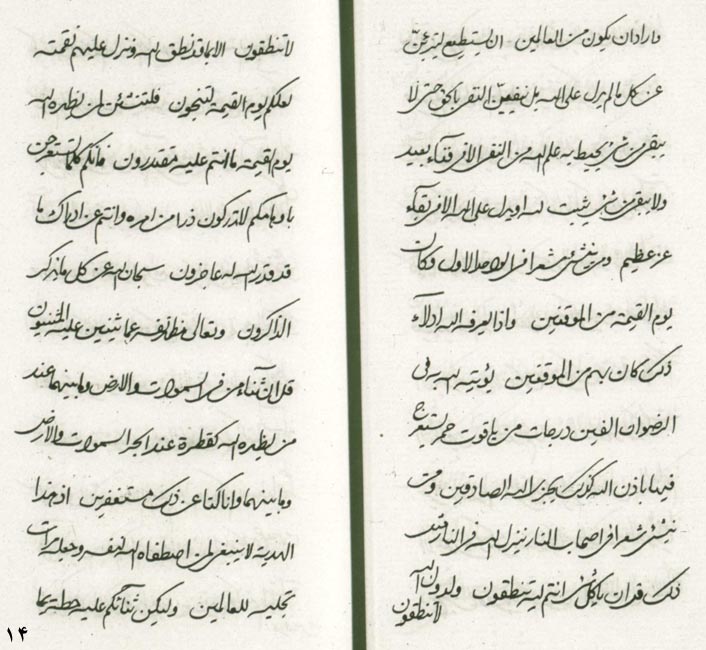 و اراد ان يكون من العالمين ان يستطيع
عن كل ما لم يدل على الله بل يفنين التقى بالحق حتى لا
يبقى من شیء يحيط به علم الله من النفى الا فى فناء بعيد
ولا يبقى من شیء يثبت لله او يدل على الله الا فى بقاء
عز عظيم ومن ينشئ شعرا فى الواحد الاول فكان
يوم القيمة من الموقنين واذا يعرف الله ادلاء
ذلك كان بهم من الموقنين يؤتيه الله به فى
الرضوان الفين درجات من ياقوت حمر يستعرج
فيها باذن الله كذلك يجزى الله الصادقين ومن
ينشئ شعرا فى اصحاب النار ينزل الله فى النار قبل
ذلك قد ان يا كل شیء انتم لله تنطقون ولدون الله
لا تنطقون
لا تنطقون الا بما قد نطق الله وينزل عليهم نقمته
لعلكم يوم القيمة لتنجون فلتنشئن لمن يظهره الله
يوم القيمة ما انتم عليه مقتدرون فانكم كلما تستعرجن
باوهامكم لا تدركون ذرا من امره وانتم عن ادراك ما
قد قدر الله له عاجزون سبحان الله عن كل ما يذكر
الذاكرون وتعالى مظهر نفسه عما يثنين عليه المثنيون
قل ان ثناء من فى السموات والارض وما بينهما عند
من يظهره الله كقطرة عند ابحر السموات والارض
وما بينهما وانا كنا عن ذلك مستغفرين اذ هذا
الهدية لا ينبغى لمن اصطفاه الله لنفسه وجعله مرات
تجليه للعالمين وليكن ثنائكم عليه حطة بما
١٤